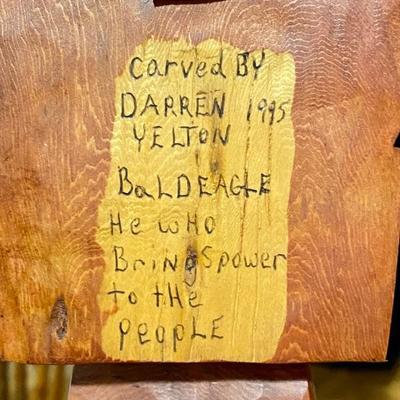 Carved BY
DARREN 1995
YELTON
BaLDEAGLE
He wHO
BringSpower
to tHe
PeopLE